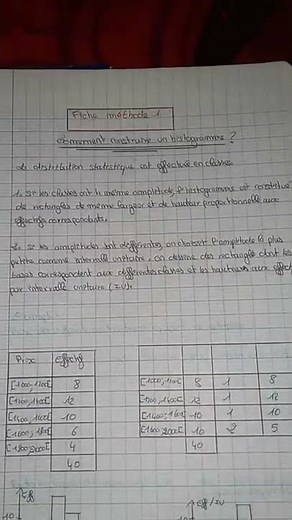 Fiche méthode 1
Comment construire un histogramme ?
La distribution statistique est effectuée en classes
1. Si les classes ont la même amplitude, l'histogramme est constitué
de rectangles de même largeur et de hauteur proportionnelle aux
effectifs correspondants.
2. Si les amplitudes sont différentes, on choisit l'amplitude la plus
petite comme intervalle unitaire. on dessine des rectangle dont les
bases correspondent aux différentes classes et les hauteurs aux
par intervalle unitaire (IU).
Prix Effectif
8 8 1 8
12 12 1 12
10 10 1 10
6 10 2 5
4 40
40
Eff Eff/IU
10 10